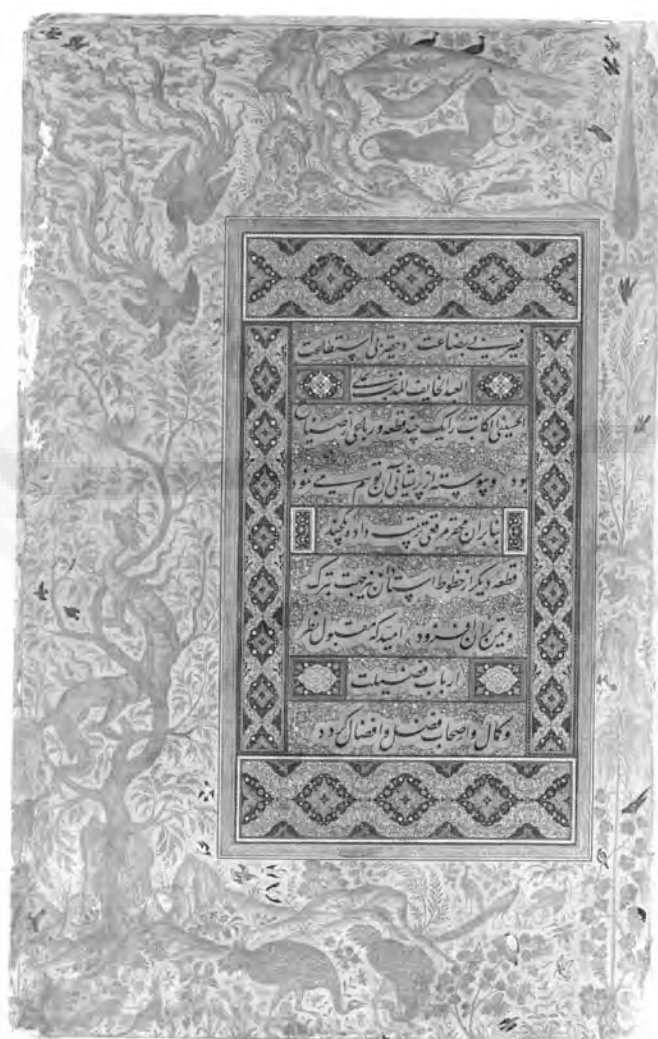 فقیر بی بضاعت و حقیر بی استطاعت
العبد الخایف المذنب علی
الحسینی الکاتب را یک چند قطعه و رباعی از
بود و پیوسته از پریشانی آن توهم می نمود
بنابران داده یکچند
قطعه دیکر از خطوط استادان نیز جهت تبرک
و تیمن بران افزود امید که مقبول نظر
ارباب فضیلت
و کمال و اصحاب فضل و افضال کردد